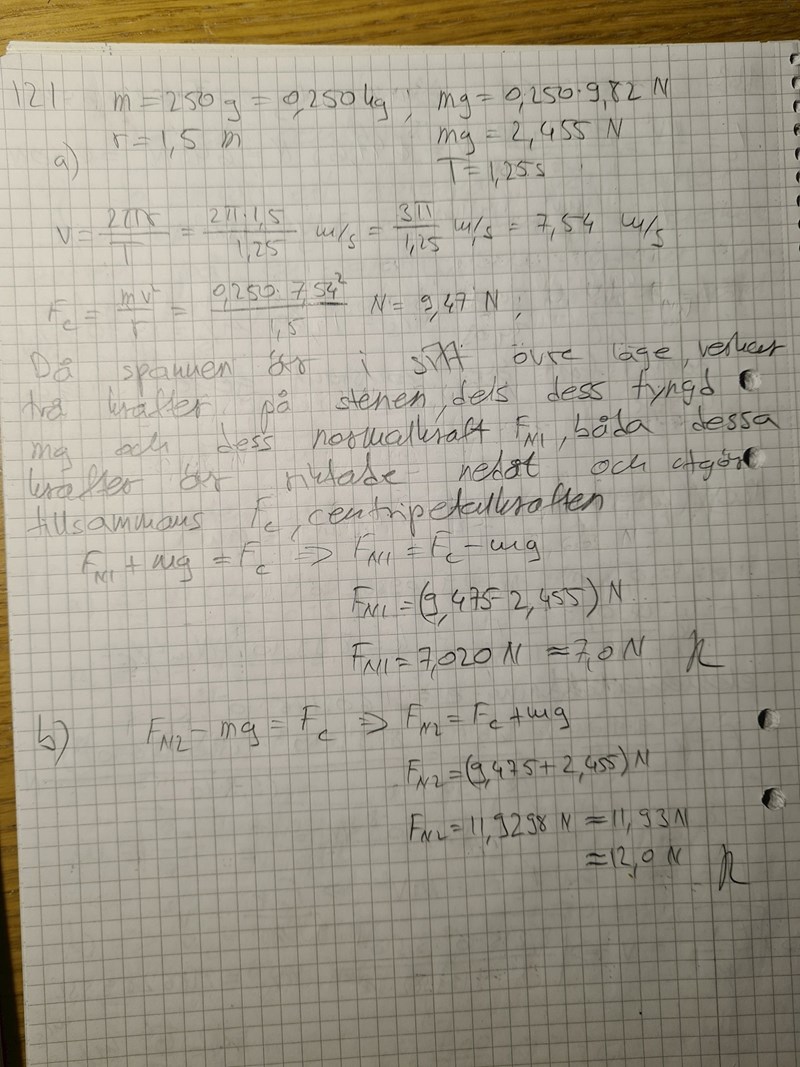 121 m = 250 g = 0,250 kg ; mg = 0,250·9,82 N
r = 1,5 m mg = 2,455 N
a) T = 1,25 s
v = 2πr/T = 2π·1,5/1,25 m/s = 3π/1,25 m/s = 7,54 m/s
Fc = mv²/r = 0,250·7,54²/1,5 N = 9,47 N ;
Då spannen är i sitt övre läge, verkar
två krafter på stenen, dels dess tyngd
mg och dess normalkraft FN1, båda dessa
krafter är riktade nedåt och utgör
tillsammans Fc, centripetalkraften
FN1 + mg = Fc ⇒ FN1 = Fc − mg
FN1 = (9,475 − 2,455) N
FN1 = 7,020 N ≈ 7,0 N R
b) FN2 − mg = Fc ⇒ FN2 = Fc + mg
FN2 = (9,475 + 2,455) N
FN2 = 11,9298 N ≈ 11,93 N
≈ 12,0 N R